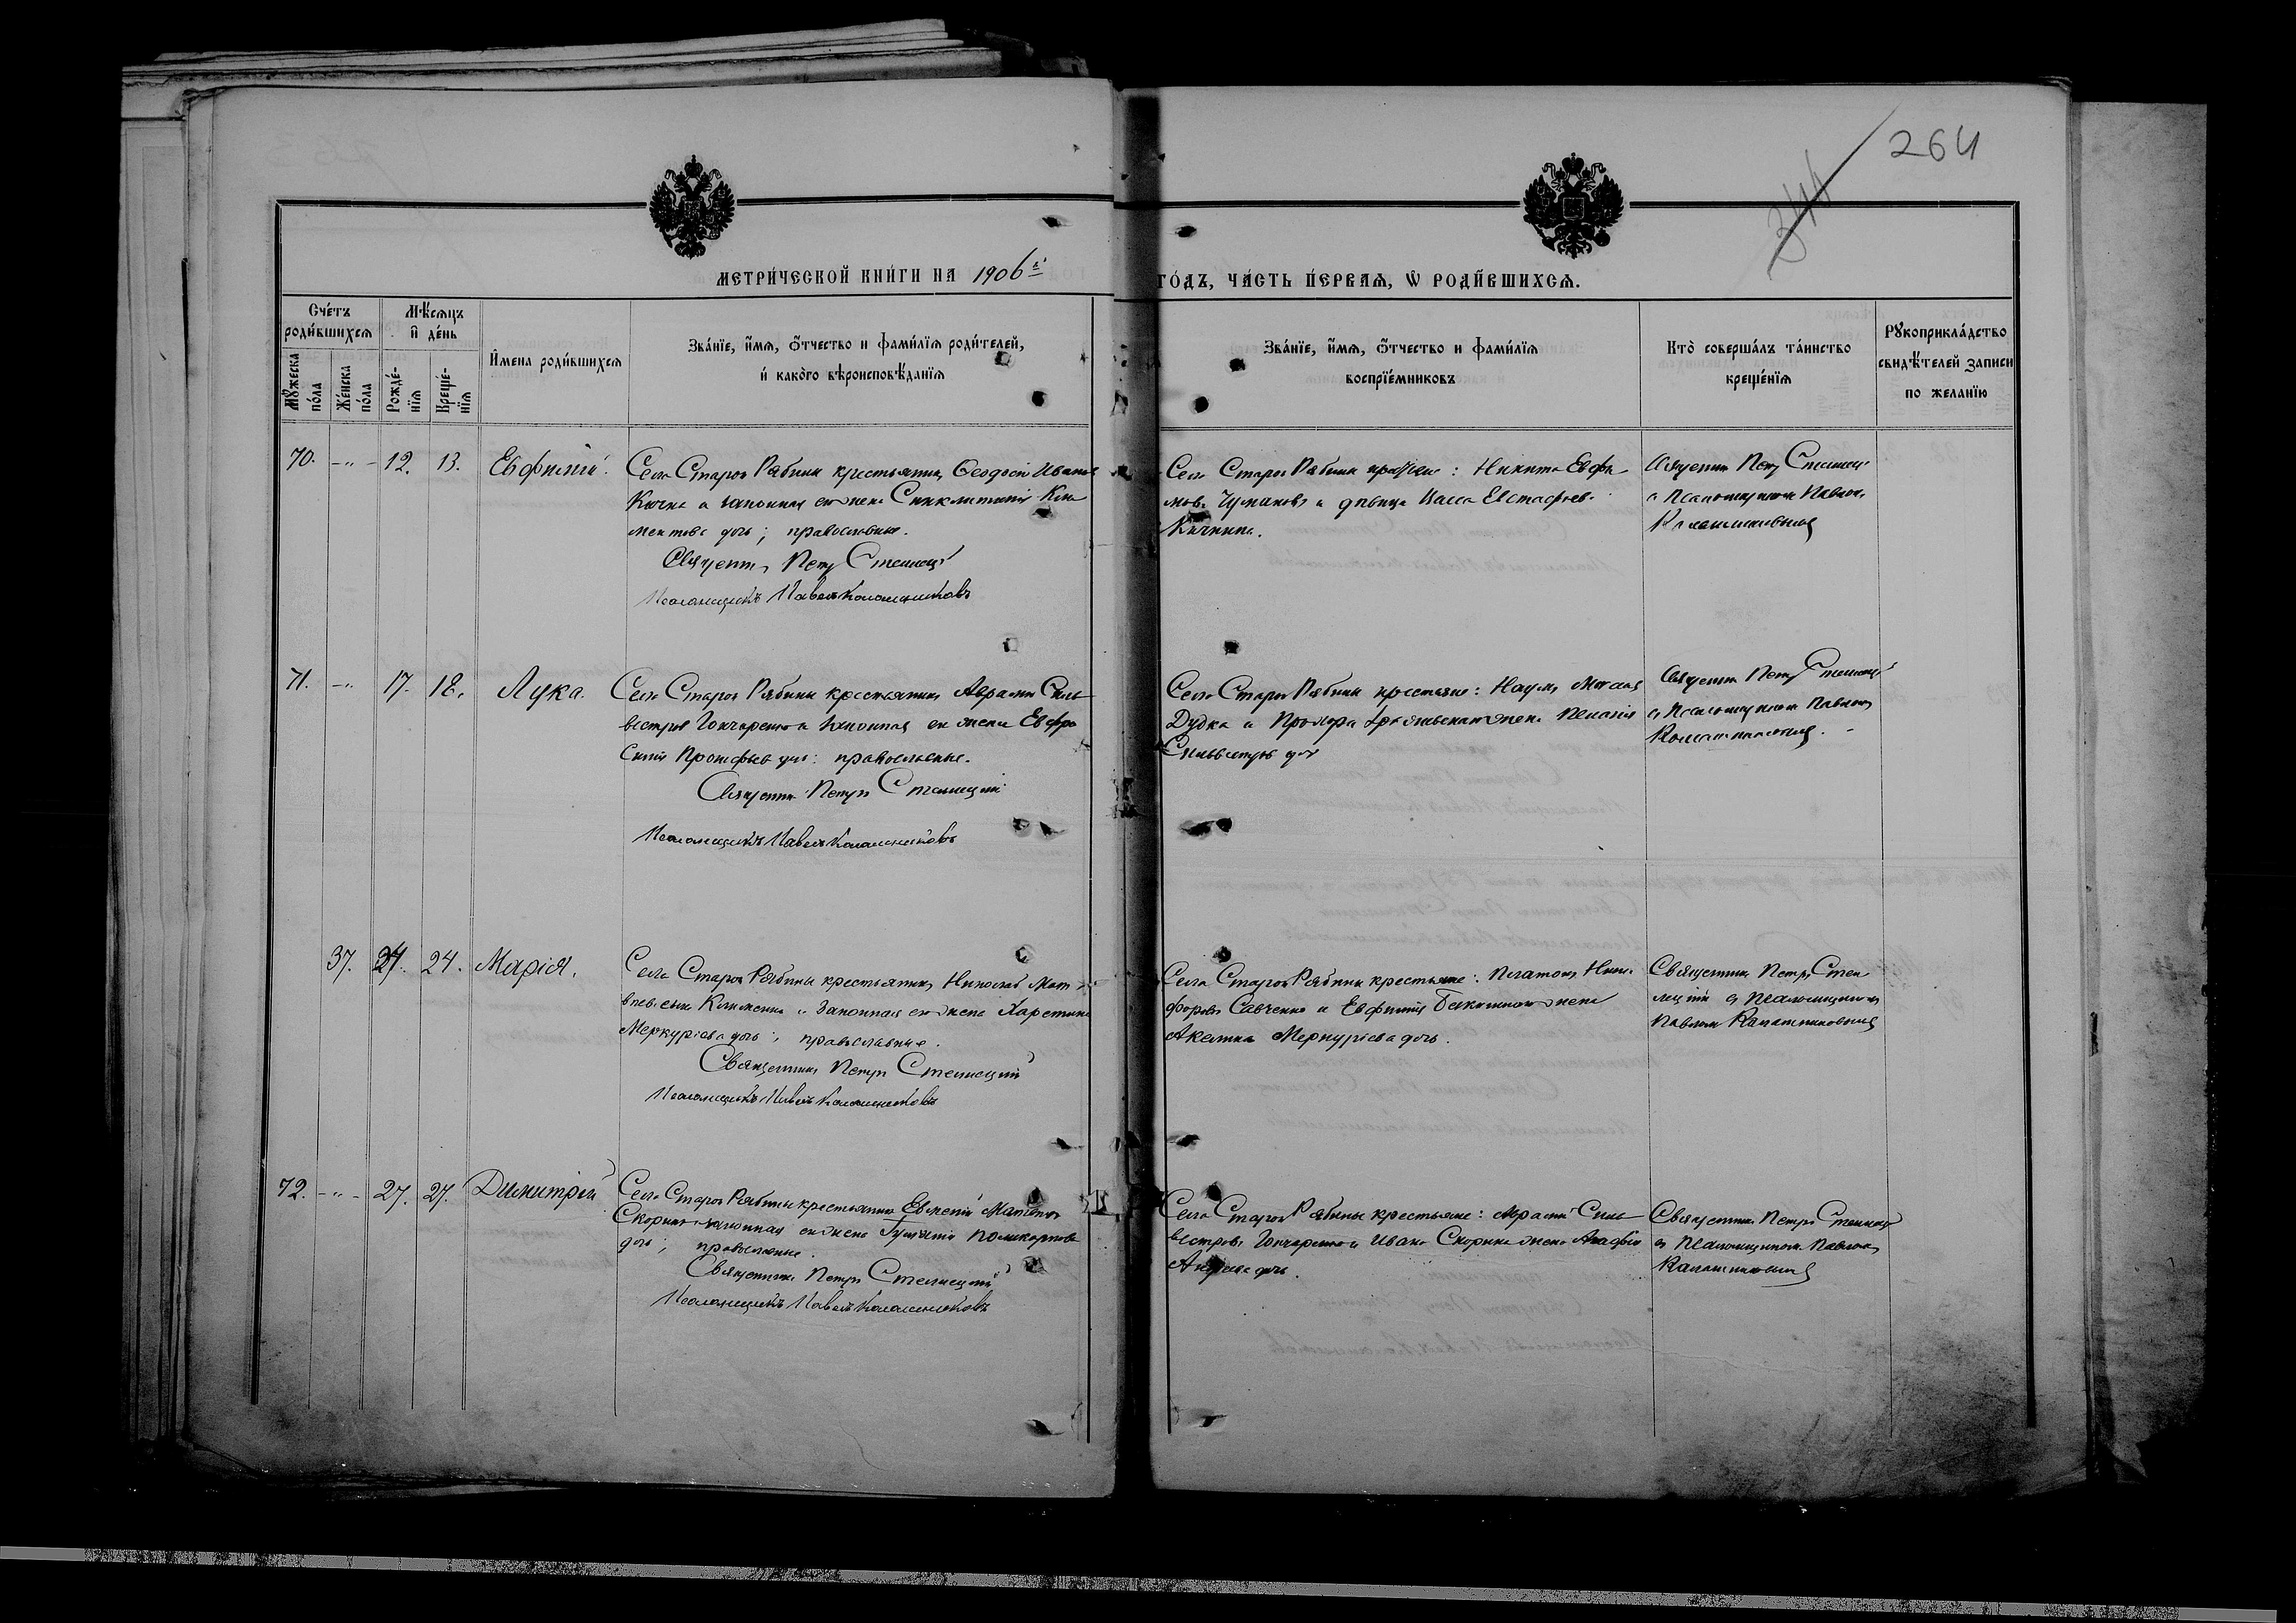 264
344
МЕТРИ́ЧЕСКОЙ КНИ́ГИ НА 1906й
ГО́ДЪ, ЧА́СТЬ ПЕ́РВАѦ, Ѡ РОДИ́ВШИХСѦ.
Сче́тъ роди́вшихсѧ
Мꙋ́жеска по́ла
Же́нска по́ла
Мѣ́сѧцъ и҆ де́нь
Рожде́-нїѧ
Креще́-нїѧ
И҆мена роди́вшихсѧ
Зва́нїе, и҆́мѧ, ѻ҆́тчество и фами́лїѧ роди́телей,
и҆ како́го вѣроисповѣ́данїѧ
Зва́нїе, и҆́мѧ, ѻ҆́тчество и фами́лїѧ
воспрїе́мниковъ
Кто̀ соверша́лъ та́инство
креще́нїѧ
Рꙋкоприкла́дство
свидѣ́телей записи
по желанїю
70. -"- 12. 13. Евфимій.
Села Старой Рябины крестьянинъ Ѳеодосій Иванов
Кючка и законная его жена Синклитикія Кли
ментова дочь; православные.
Священникъ Петръ Стеллецкій
Псаломщикъ Павелъ Калашниковъ
Села Старой Рябины крестьяне: Никита Евфи
мов. Чумаковъ и девица Васса Евстафьев.
Священник Петр Стеллецкій
с псаломщиком Павлом
Калашниковымъ
71. -"- 17. 18. Лука.
Села Старой Рябины крестьянинъ Аврамій Силь
вестров Гончаренко и законная его жена Евфро
синія Прокофьев дочь: православные.
Священник Петръ Стеллецкій
Псаломщикъ Павелъ Калашниковъ
Села Старой Рябины крестьяне: Наумъ
Дудка и Прохора жена Пелагія
Сильвестров дочь
Священник Петр Стеллецкій
с псаломщиком Павлом
Калашниковымъ.
37. 24. 24. Марія.
Села Старой Рябины крестьянинъ Николай Мат
вѣевъ сынъ Клименко и законная его жена Харитина
Меркуріева дочь; православные.
Священникъ Петръ Стеллецкій
Псаломщикъ Павелъ Калашниковъ
Села Старой Рябины крестьяне: Платонъ Ники
форовъ Савченко и Евфимія жена
Акилина Меркуріева дочь.
Священникъ Петръ Стел
лецкій съ псаломщикомъ
Павломъ Калашниковымъ
72. -"- 27. 27. Димитрій
Села Старой Рябины крестьянинъ Евменій
Скорик и законная его жена Гликерія Поликарпова
дочь; православные.
Священникъ Петръ Стеллецкій
Псаломщикъ Павелъ Калашниковъ
Села Старой Рябины крестьяне: Аврамій Силь
вестровъ Гончаренко и Ивана Скорика жена Агафія
Андреева дочь.
Священникъ Петръ Стеллецкій
съ псаломщикомъ Павломъ
Калашниковымъ